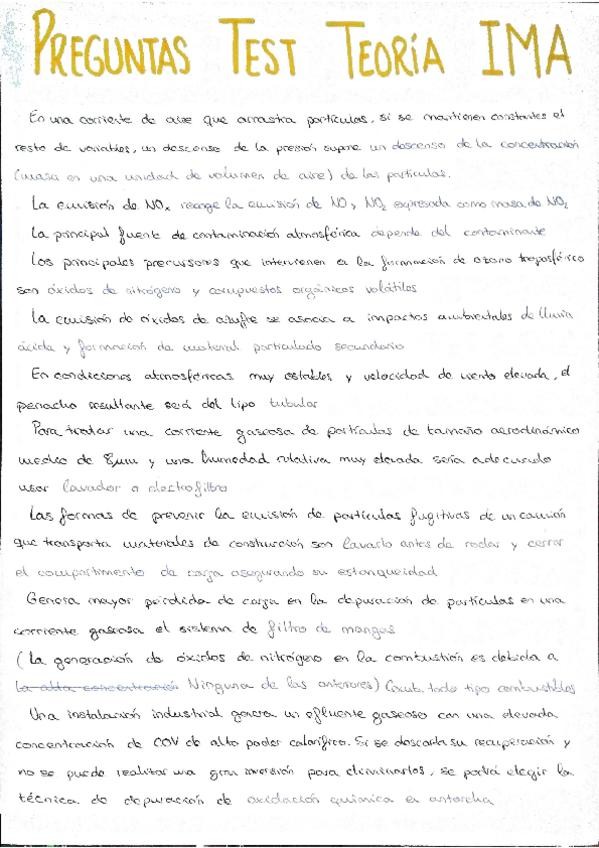 PREGUNTAS TEST TEORÍA IMA
En una corriente de aire que arrastra partículas, si se mantienen constantes el
resto de variables, un descenso de la presión supone un descenso de la concentración
(masa en una unidad de volumen de aire) de las partículas.
La emisión de NOx recoge la emisión de NO y NO2 expresada como masa de NO2
La principal fuente de contaminación atmosférica depende del contaminante
Los principales precursores que intervienen en la formación de ozono troposférico
son óxidos de nitrógeno y compuestos orgánicos volátiles
La emisión de óxidos de azufre se asocia a impactos ambientales de lluvia
ácida y formación de material particulado secundario
En condiciones atmosféricas muy estables y velocidad de viento elevada, el
penacho resultante será del tipo tubular
Para tratar una corriente gaseosa de partículas de tamaño aerodinámico
medio de 5µm y una humedad relativa muy elevada sería adecuado
usar lavador o electrofiltro
Las formas de prevenir la emisión de partículas fugitivas de un camión
que transporta materiales de construcción son lavarlo antes de rodar y cerrar
el compartimento de carga asegurando su estanqueidad
Genera mayor pérdida de carga en la depuración de partículas en una
corriente gaseosa el sistema de filtro de mangas
(La generación de óxidos de nitrógeno en la combustión es debida a
la alta concentración Ninguna de las anteriores) Comb. todo tipo combustibles
Una instalación industrial genera un efluente gaseoso con una elevada
concentración de COV de alto poder calorífico. Si se descarta su recuperación y
no se puede realizar una gran inversión para eliminarlos, se podrá elegir la
técnica de depuración de oxidación química en antorcha